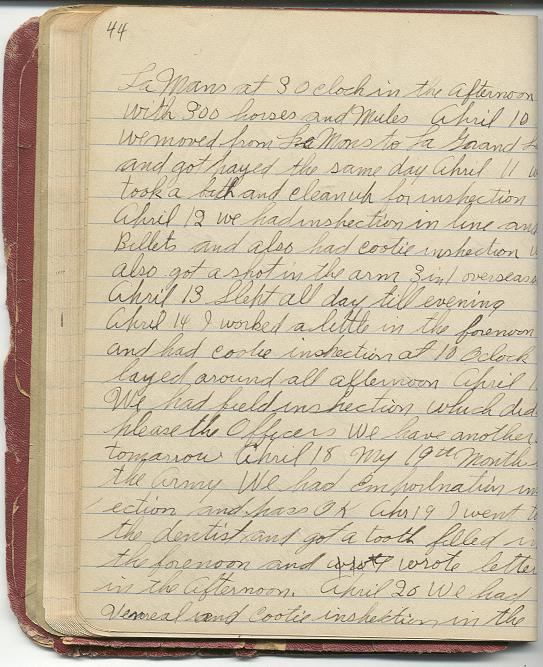 44
La Mans at 3 Oclock in the afternoon
with 300 horses and Mules April 10
we moved from La Mons to La Grand
and got payed the same day April 11
took a bath and clean up for inspection
April 12 we had inspection in line and
Billets and also had cootie inspection
also got a shot in the arm 3 in 1 overseas
April 13 Slept all day till evening
April 14 I worked a little in the forenoon
and had cootie inspection at 10 Oclock
layed around all afternoon April
We had field inspection which did
please the Officers We have another
tomarrow April 18 My 19th Month
the Army We had in
ection and pass OK Apr 19 I went to
the dentist and got a tooth filled in
the forenoon and wrote letter
in the Afternoon. April 20 We had
Venreal and Cootie inspection in the